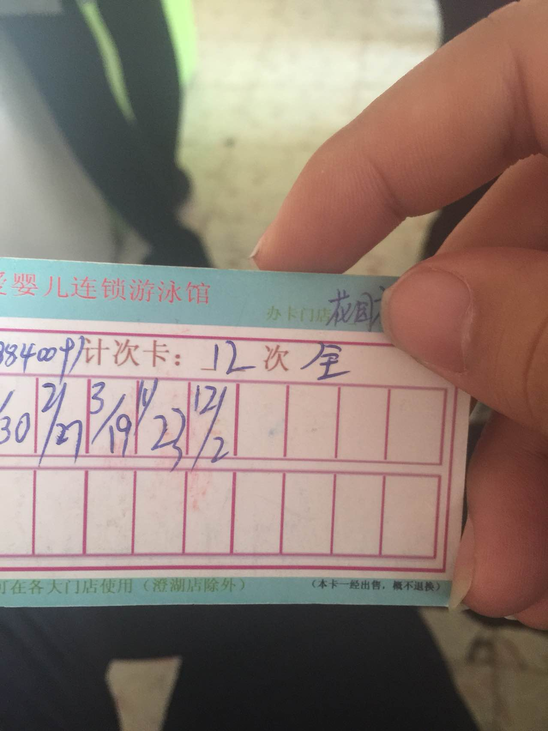 爱婴儿连锁游泳馆
办卡门店 花园
3840091 计次卡：12次 全
/30 2/27 3/19 11/23 12/2
可在各大门店使用（澄湖店除外） （本卡一经出售，概不退换）